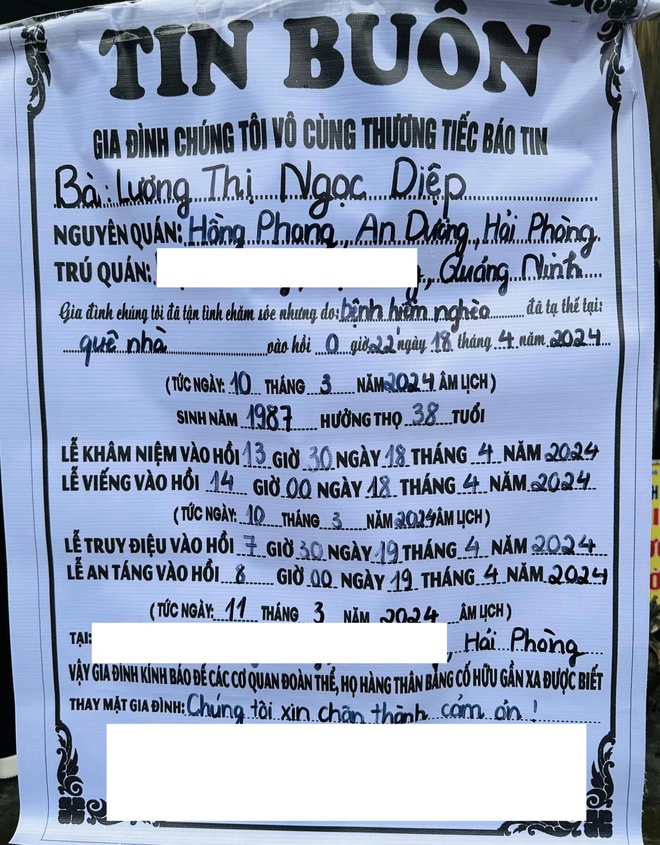 TIN BUỒN
GIA ĐÌNH CHÚNG TÔI VÔ CÙNG THƯƠNG TIẾC BÁO TIN
Bà: Lương Thị Ngọc Diệp
NGUYÊN QUÁN: Hồng Phong, An Dương, Hải Phòng
TRÚ QUÁN: , Quảng Ninh
Gia đình chúng tôi đã tận tình chăm sóc nhưng do: bệnh hiểm nghèo đã tạ thế tại:
quê nhà vào hồi 0 giờ 22' ngày 18 tháng 4 năm 2024
(TỨC NGÀY: 10 THÁNG 3 NĂM 2024 ÂM LỊCH)
SINH NĂM 1987 HƯỞNG THỌ 38 TUỔI
LỄ KHÂM NIỆM VÀO HỒI 13 GIỜ 30 NGÀY 18 THÁNG 4 NĂM 2024
LỄ VIẾNG VÀO HỒI 14 GIỜ 00 NGÀY 18 THÁNG 4 NĂM 2024
(TỨC NGÀY: 10 THÁNG 3 NĂM 2024 ÂM LỊCH)
LỄ TRUY ĐIỆU VÀO HỒI 7 GIỜ 30 NGÀY 19 THÁNG 4 NĂM 2024
LỄ AN TÁNG VÀO HỒI 8 GIỜ 00 NGÀY 19 THÁNG 4 NĂM 2024
(TỨC NGÀY: 11 THÁNG 3 NĂM 2024 ÂM LỊCH)
TẠI: , Hải Phòng
VẬY GIA ĐÌNH KÍNH BÁO ĐỂ CÁC CƠ QUAN ĐOÀN THỂ, HỌ HÀNG THÂN BẰNG CỐ HỮU GẦN XA ĐƯỢC BIẾT
THAY MẶT GIA ĐÌNH: Chúng tôi xin chân thành cảm ơn!